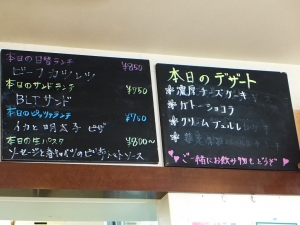 本日の日替ランチ ¥850
ビーフカツレツ
本日のサンドランチ ¥750
BLTサンド
本日のピッツァランチ ¥750
イカと明太子ピザ
本日の生パスタ ¥800〜
ソーセージと
本日のデザート
❋濃厚チーズケーキ
❋ガトーショコラ
❋クリームブリュレ
♥ご一緒にお飲み物もどうぞ♥